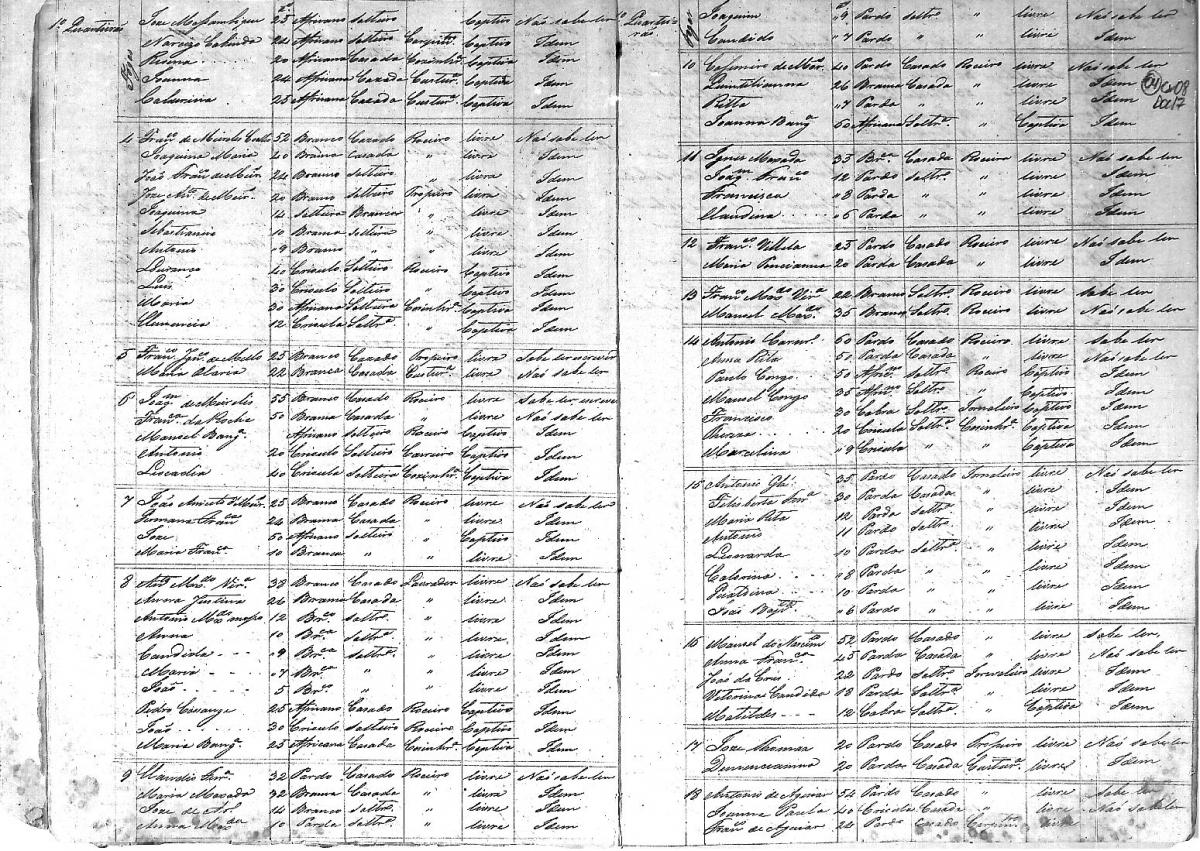 Joze Mossambique 25 Africano Solteiro Captivo Não sabe ler
1º Quarteirão Fogos Narcizo Cabinda 24 Africano Solteiro Carpintº. Captivo Idem
Rosina 20 Africana Casada Cozinhª. Captiva Idem
Joanna 24 Africana Casada Costurª. Captiva Idem
Catarina 25 Africana Casada Costurª. Captiva Idem
4 Franº. de Meirelis 52 Branco Casado Roceiro livre Não sabe ler
Joaquina Maria 40 Branca Casada " livre Idem
João Franº. de Meir. 24 Branco Solteiro " livre Idem
Joze Anº. de Meir. 20 Branco Solteiro Tropeiro livre Idem
Joaquina 14 Solteira Branca " livre Idem
Sebastianna 10 Branca Solteira " livre Idem
Antonio "9 Branco " " livre Idem
Lourenço 40 Crioulo Solteiro Roceiro Captivo Idem
Luis 30 Crioulo Solteiro " Captivo Idem
Maria 30 Africana Solteira Cozinhª. Captiva Idem
Clemencia 12 Crioula Soltrª. " Captiva Idem
5 Franº. Jnº. de Mello 25 Branco Casado Tropeiro livre Sabe ler escrever
Maria 22 Branca Casada Costurª. livre Não sabe ler
6 Joaqm. de Meirelis 55 Branco Casado Roceiro livre Sabe ler escrever
Franca. da Rocha 50 Branca Casada " livre Não sabe ler
Manoel Bang. Africano Solteiro Roceiro Captivo Idem
Antonio 20 Crioulo Solteiro Carreiro Captivo Idem
Leocadia 40 Crioula Solteira Cozinhª. Captiva Idem
7 João Aniceto de Meir. 25 Branco Casado Roceiro livre Não sabe ler
Germana Franca. 24 Branca Casada " livre Idem
Joze 50 Africano Solteiro " Captivo Idem
Maria Franca. 10 Branca " " livre Idem
8 Anto. Mdo. 38 Branco Casado Lavrador livre Não sabe ler
Anna Justina 26 Branca Casada " livre Idem
Antonio Mdo. moço 12 Brco. Soltro. " livre Idem
Anna 10 Brca. Soltra. " livre Idem
Candida "9 Brca. Soltra. " livre Idem
Maria "7 Brca. " " livre Idem
João 5 Brco. " " livre Idem
Pedro Casange 25 Africano Casado Roceiro Captivo Idem
João 30 Crioulo Solteiro Roceiro Captivo Idem
Maria Bang. 25 Africana Casada Cozinhª. Captiva Idem
9 32 Pardo Casado Roceiro livre Não sabe ler
Maria Maxado 32 Branca Casada " livre Idem
Joze de 14 Branco Soltro. " livre Idem
Anna 10 Parda Soltra. " livre Idem
1º Quarteirão Fogos Joaquim "9 Pardo Soltro. livre Não sabe ler
Candido "7 Pardo " livre Idem
10 Casemiro de 40 Pardo Casado Roceiro livre Não sabe ler
Quintilianna 26 Branca Casada " livre Idem
Ritta "7 Parda " " livre Idem
Joanna Bang. 60 Africana Soltra. " Captiva Idem
04 Cx08 Doc17
11 Ignes Maxada 35 Brca. Casada Roceiro livre Não sabe ler
Joaqm. Franco. 12 Pardo Soltro. " livre Idem
Francisca "8 Parda " " livre Idem
Claudina "6 Parda " " livre Idem
12 Franco. Villela 25 Pardo Casado Roceiro livre Não sabe ler
Maria Ponciana 20 Parda Casada " livre Idem
13 Franco. Mdo. 22 Branco Soltro. Roceiro livre Sabe ler
Manoel Mdo. 35 Branco Soltro. Roceiro livre Não sabe ler
14 Antonio 60 Pardo Casado Roceiro livre Sabe ler
Anna Rita 50 Parda Casada " livre Não sabe ler
Paulo Congo 50 Afrno. Soltro. Roceiro Captivo Idem
Manoel Congo 35 Afrno. Soltro. " Captivo Idem
Francisco 30 Cabra Soltro. Jornaleiro Captivo Idem
Thereza 20 Crioula Soltra. Cozinhª. Captiva Idem
Marcelina "9 Crioula " " Captiva Idem
15 Antonio 35 Pardo Casado Jornaleiro livre Não sabe ler
Felisberta 30 Parda Casada " livre Idem
Maria Rita 12 Parda Soltra. " livre Idem
Antonio 11 Pardo Soltro. " livre Idem
Leonarda 10 Parda Soltra. " livre Idem
Catarina "8 Parda " " livre Idem
10 Parda " " livre Idem
João Bapta. "6 Pardo " " livre Idem
16 Manoel do Nascimo. 52 Pardo Casado " livre Sabe ler
Anna Franca. 45 Parda Casada " livre Não sabe ler
João da Cruz 22 Pardo Soltro. Jornaleiro livre Idem
Veterina Candida 18 Parda Soltra. " livre Idem
Matildes 12 Cabra Soltra. " Captiva Idem
17 Joze 20 Pardo Casado Tropeiro livre Não sabe ler
20 Parda Casada Costurª. livre Idem
18 Antonio de Aguiar 54 Pardo Casado " livre Sabe ler
Joanna Paula 40 Crioula Casada " livre Não sabe ler
Franco. de Aguiar 24 Pardo Casado Carpintº. livre Idem